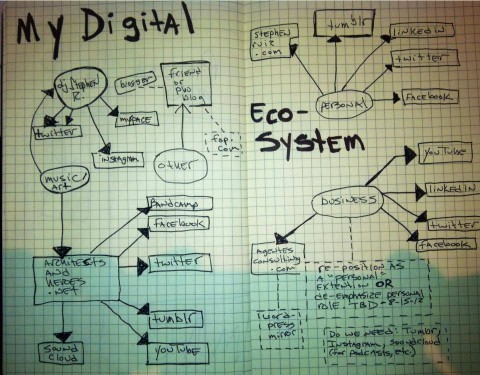 My Digital
Eco-
System
dj.Stephen
R.
blogger
friend
of pbo
blog
twitter
myFace
instagram
music/
art
other
fop.
com
Bandcamp
facebook
twitter
tumblr
YouTube
Architects
and
Heroes
.net
Sound
Cloud
Stephen
ruiz
.com
tumblr
linkedin
twitter
Facebook
personal
YouTube
linkedin
twitter
facebook
business
Agentes
consulting
.com
word-
press
mirror
re-position as
a "personal"
extension OR
de-emphasize personal
role. TBD - 8-15-12
Do we need: Tumblr,
Instagram, soundcloud
(for podcasts, etc.)